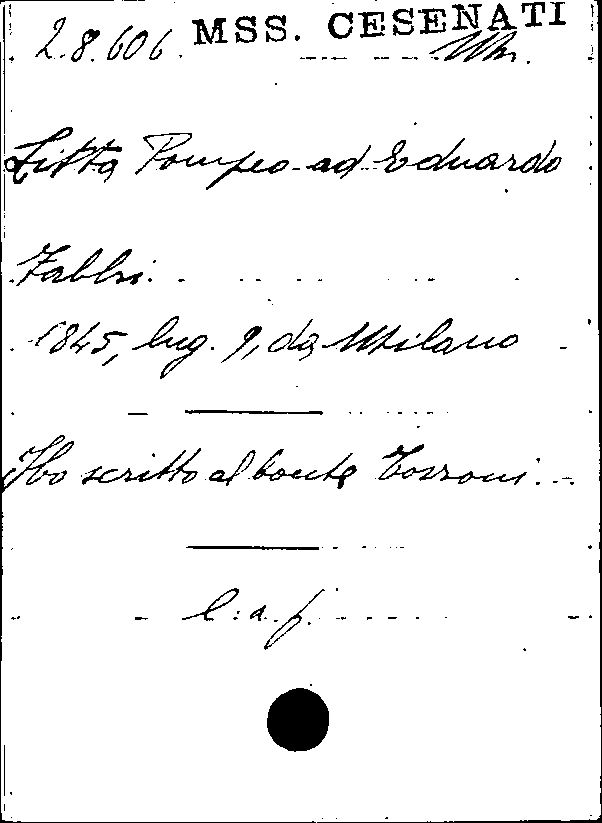 MSS. CESENATI
2.8.606.
Litta Pompeo ad Eduardo
Fabbri.
1845, lug. 9, da Milano
Ho scritto al Conte Tozzoni.
l. a. f.